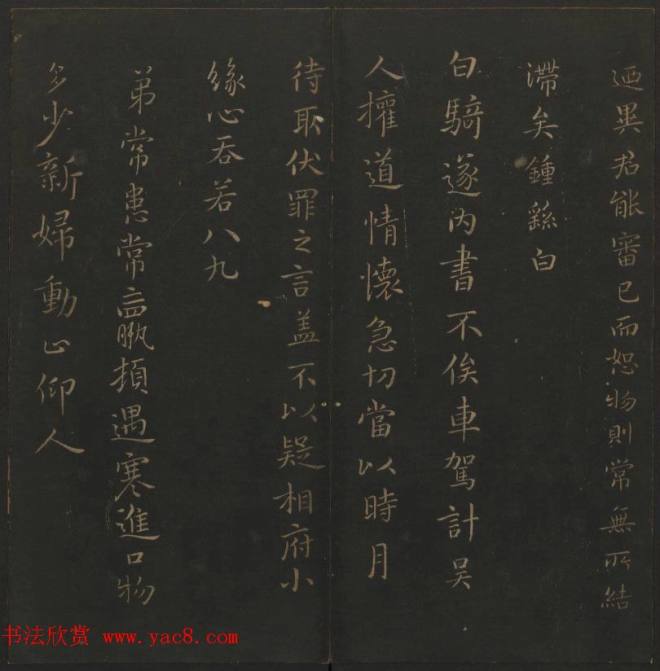 迺異君能審己而恕物則常無所結
滯矣鍾繇白
白騎遂内書不俟車駕計吴
人權道情懷急切當以時月
待取伏罪之言盖不以疑相府小
緣心吞若八九
弟常患常羸頓遇寒進口物
多少新婦動止仰人
书法欣赏 www.yac8.com